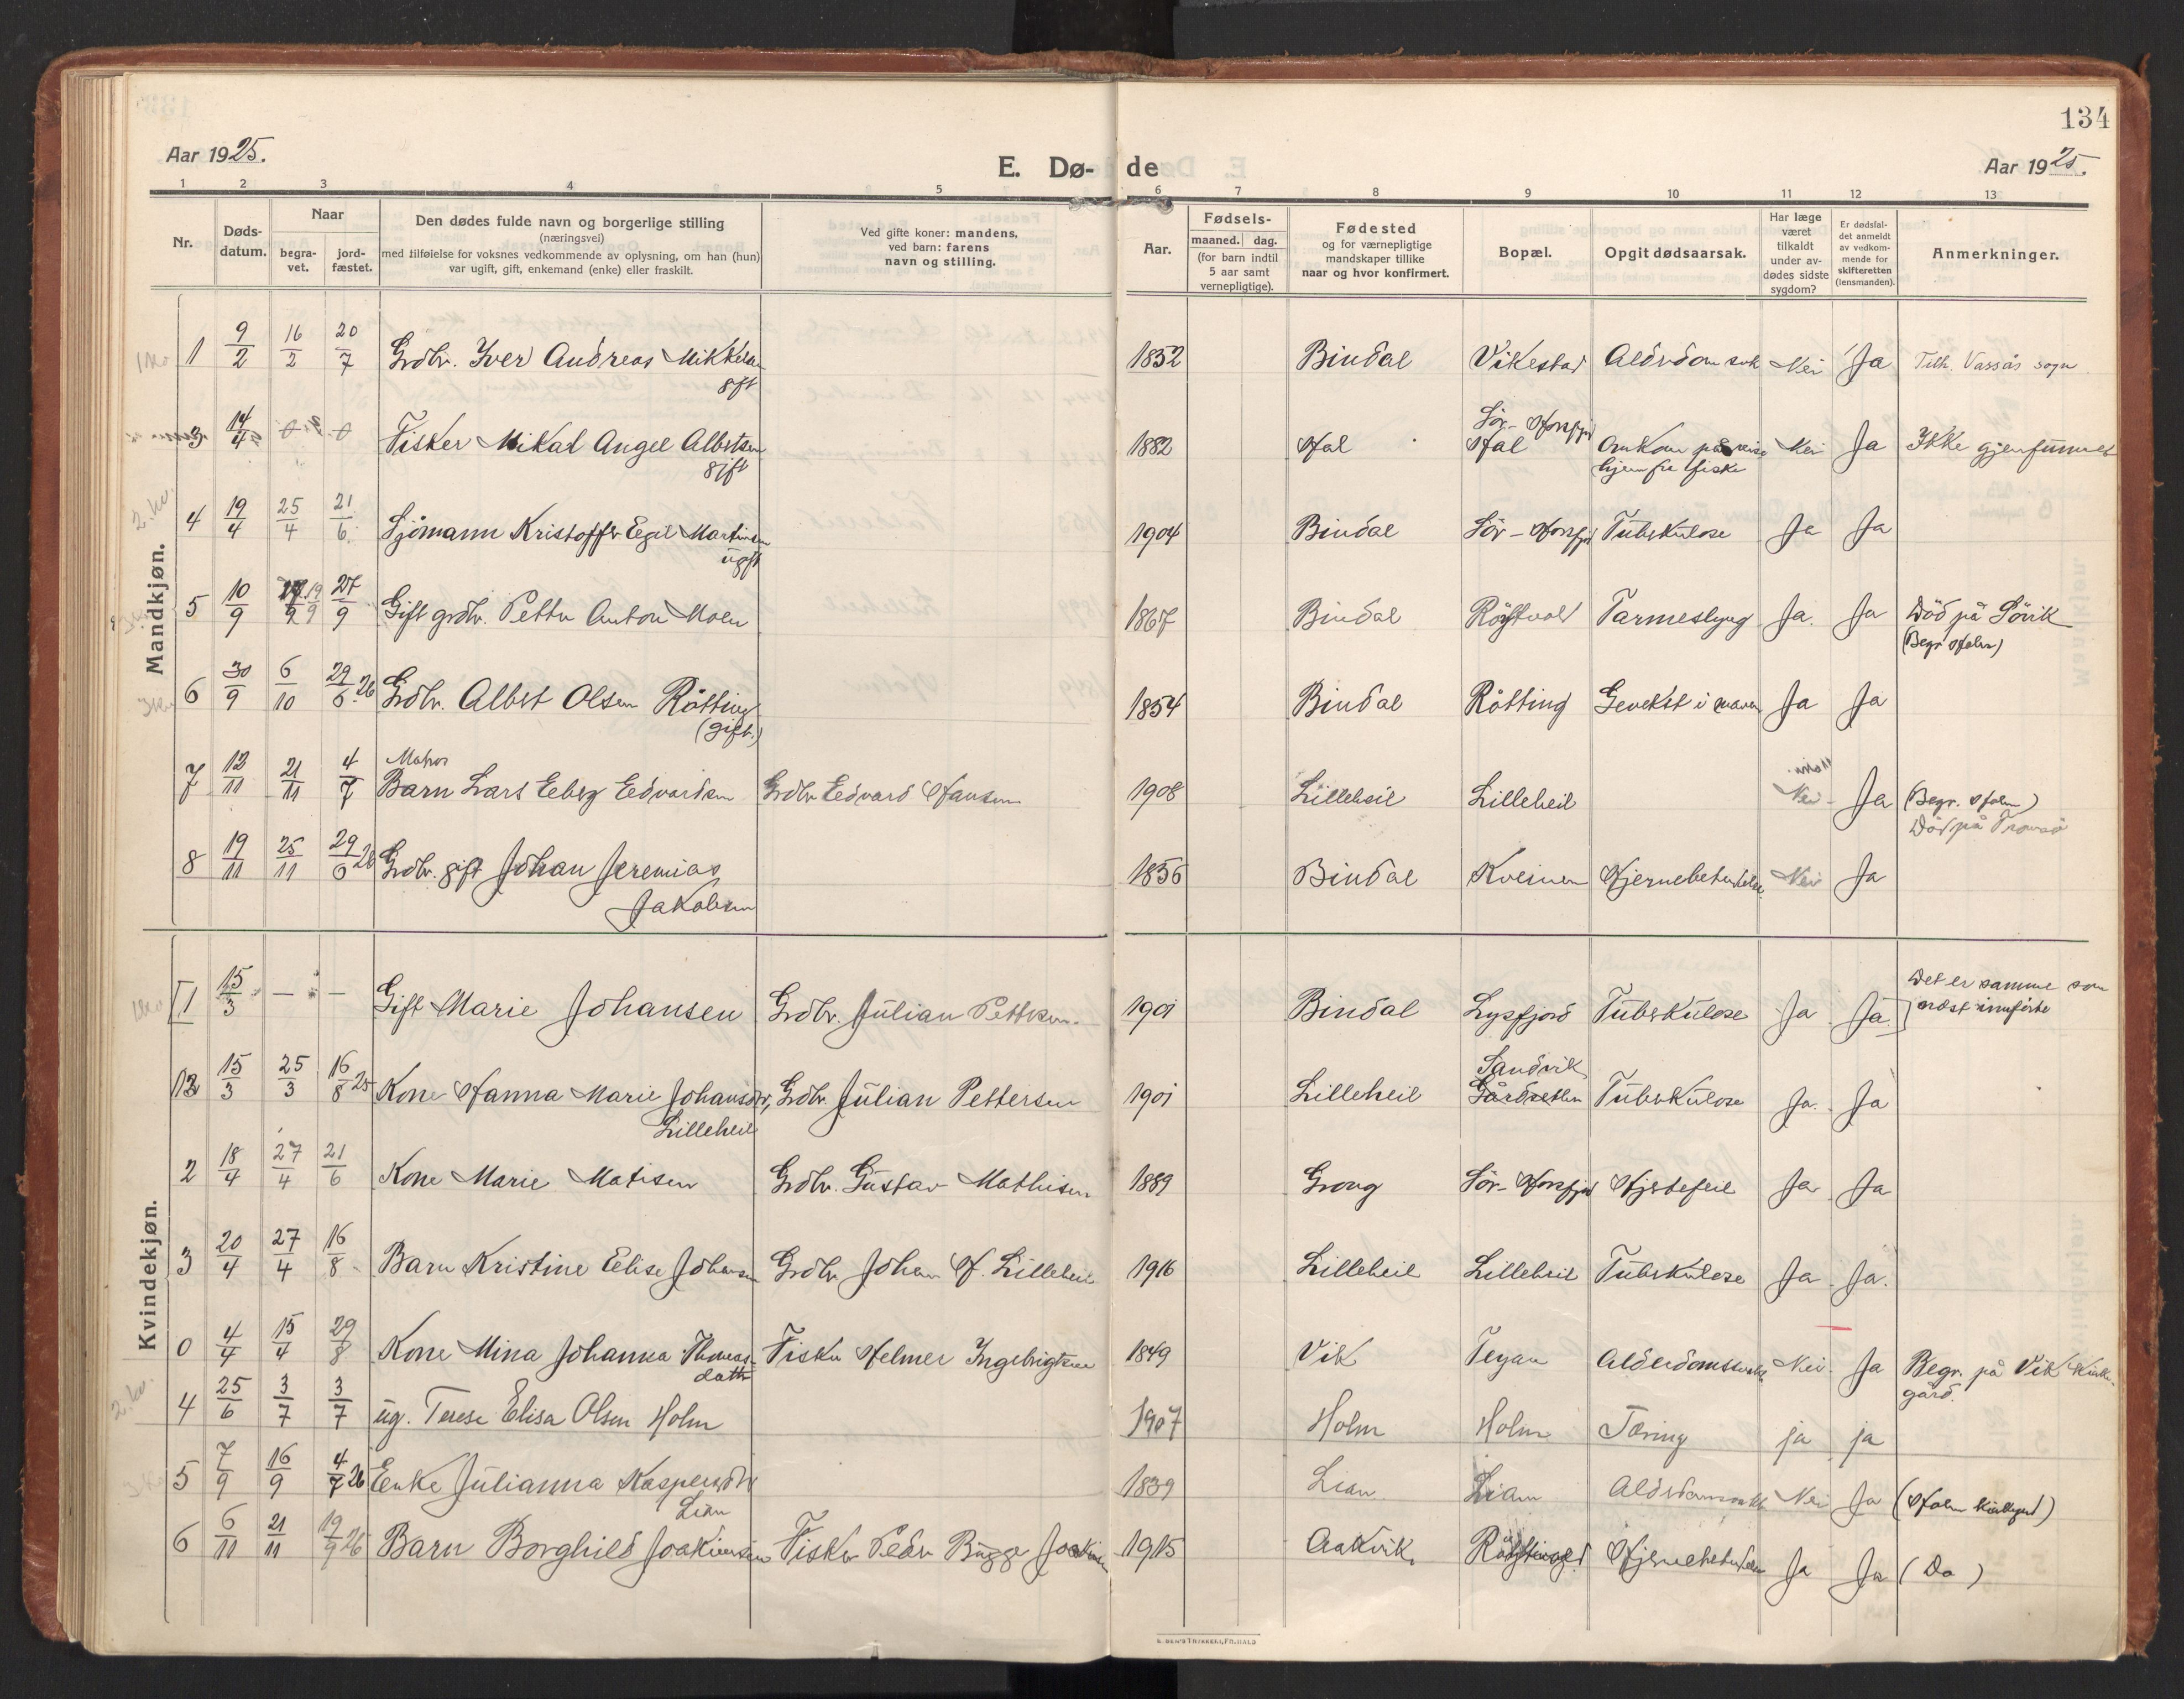 134
Aar 1925.
E. Dø- de
Aar 1925.
1 2 3 4 5 6 7 8 9 10 11 12 13
Nr.
Døds-
datum.
Naar
begra-
vet.
jord-
fæstet.
Den dødes fulde navn og borgerlige stilling
(næringsvei)
med tilføielse for voksnes vedkommende av oplysning, om han (hun)
var ugift, gift, enkemand (enke) eller fraskilt.
Ved gifte koner: mandens,
ved barn: farens
navn og stilling.
Aar.
Fødsels-
maaned. dag.
(for barn indtil
5 aar samt
vernepligtige).
Fødested
og for værnepligtige
mandskaper tillike
naar og hvor konfirmert.
Bopæl.
Opgit dødsaarsak.
Har læge
været
tilkaldt
under av-
dødes sidste
sygdom?
Er dødsfal-
det anmeldt
av vedkom-
mende for
skifteretten
(lensmanden).
Anmerkninger.
Mandkjøn.
1 9/2 16/2 20/7 Grdbr. Iver Andreas Mikkelsen 1852 Bindal Vikestad Alderdomsvk Nei Ja Tilh. Vassås sogn
gift
3 14/4 0 0 Fisker Mikal Angel Albertsen 1882 Hal Sör-Horsfjord Hal Omkom på reise Nei Ja Ikke gjenfunnet
gift hjem fra fiske
4 19/4 25/4 21/6 Sjömann Kristoffer Egil Martinsen 1904 Bindal Sör-Horsfjord Tuberkulose Ja Ja
ugift
5 10/9 19/9 27/9 Gift grdbr. Petter Anton Moen 1867 Bindal Tarmeslyng Ja. Ja Död på Sövik
(Begr Holm)
6 30/9 6/10 29/6 26 Grdbr. Albert Olsen Røtting 1854 Bindal Røtting Gevekst i maven Ja Ja
(gift.)
Matros
7 12/11 21/11 4/7 Barn Lars Eberg Edvardsen Grdbr Edvard Hansen 1908 Lilleheil Lilleheil Nei Ja (Begr. Holm)
Död på Tromsö
8 19/11 25/11 29/6 26 Grdbr. gift Johan Jeremias 1856 Bindal Hjernebetendelse Nei Ja
Jakobsen
Kvindekjøn.
1 15/3 - - Gift Marie Johansen Grdbr. Julian Pettersen. 1901 Bindal Lysfjord Tuberkulose Ja Ja. Det er samme som
næst innførte
12 15/3 25/3 16/8 25 Kone Hanna Marie Johansdtr, Grdbr. Julian Pettersen 1901 Lilleheil Sandvik Tuberkulose Ja. Ja
Lilleheil
2 18/4 27/4 21/6 Kone Marie Matisen Grdbr. Gustav Mathisen 1889 Grong Sör-Horsfjord Hjertefeil Ja Ja
3 20/4 27/4 16/8 Barn Kristine Elise Johansen Grdbr Johan H. Lilleheil 1916 Lilleheil Lilleheil Tuberkulose Ja Ja.
0 4/4 15/4 29/8 Kone Mina Johanna Thomas- Fisker Helmer Ingebrigtsen 1849 Vik Alderdomssvakh Nei Ja Begr. på Vik Kirke-
datter gård.
4 25/6 3/7 3/7 ug. Terese Elisa Olsen Holm 1907 Holm Holm Tæring ja ja
5 7/9 16/9 4/7 26 Enke Julianna Kaspersdtr 1839 Lian Lian Nei Ja (Holm kirkegård)
Lian
6 6/11 21/11 19/9 26 Barn Borghild Joakimsen Fisker Peder Bugge Joakimsen 1915 Aakvik Hjernebetendelse Ja Ja (Do)